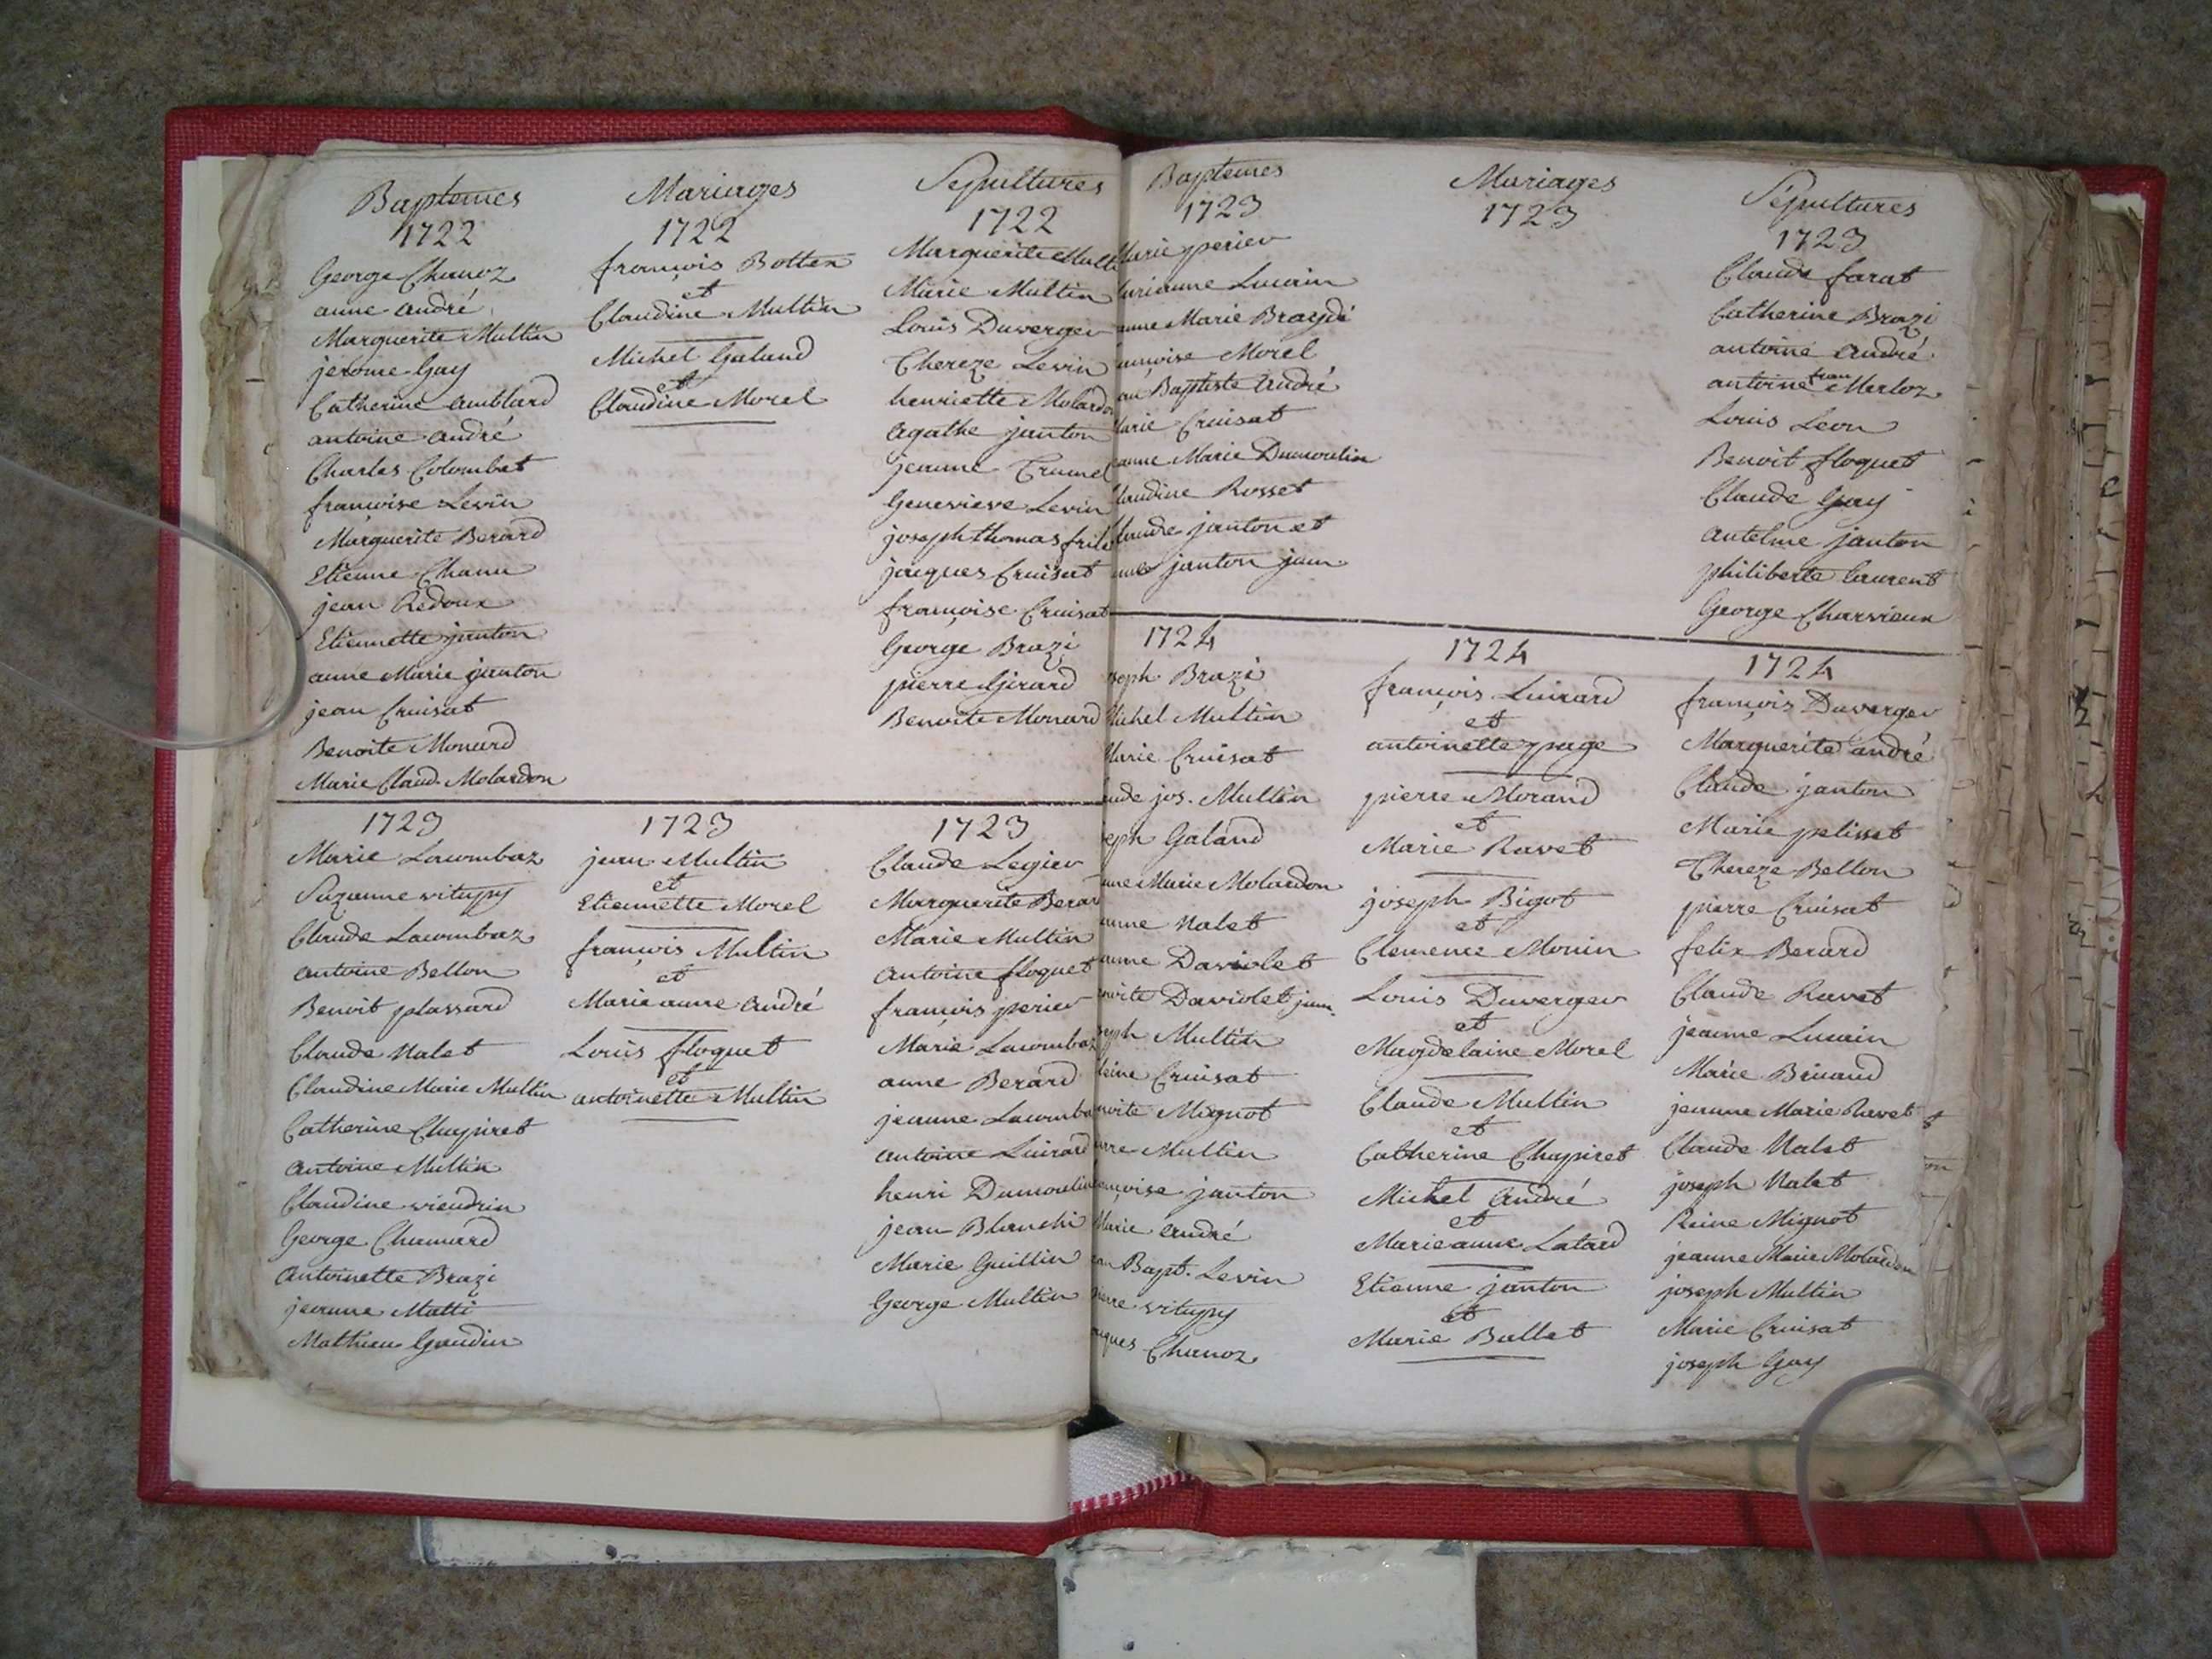 Baptemes
1722
George Chanoz
anne andré
Marguerite Multin
jerome Gay
Catherine amblard
antoine andré
Charles Colombet
françoise Levin
Marguerite Berard
Etienne Chanu
jean Redoux
Etiennette janton
anne Marie janton
jean Cruisat
Benoite Monard
Marie Claud. Molardon
Mariages
1722
françois Botten
et
Claudine Multin
Michel Galand
et
Claudine Morel
Sepultures
1722
Marguerite
Marie Multin
Louis Duverger
Thereze Levin
henriette Molardon
agathe janton
jeanne
Genevieve Levin
joseph thomas
jacques Cruisat
françoise Cruisat
George Brazi
pierre Girard
Benoite Monard
1723
Marie Lacombaz
Suzanne vitupy
Claude Lacombaz
antoine Bellon
Benoit plassard
Claude Nalet
Claudine Marie Multin
Catherine Chapiret
antoine Multin
Claudine viendrin
George Chanard
antoinette Brazi
jeanne Matti
Mathieu Goudin
1723
jean Multin
et
Etiennette Morel
françois Multin
et
Marie anne andré
Louis floquet
et
antoinette Multin
1723
Claude Legier
Marguerite
Marie Multin
antoine floquet
françois perier
Marie Lacombaz
anne Berard
jeanne
antoine Luirard
henri Dumoulin
jean Blanchi
Marie Guillin
George Multin
Baptemes
1723
Marie perier
Lucain
anne Marie
Morel
Baptiste andré
Marie Cruisat
Marie Dumoulin
Claudine Rosset
Claude janton et
janton jum.
1724
Brazi
Michel Multin
Marie Cruisat
jos. Multin
Galand
Marie Molardon
Nalet
Daviolet
Daviolet jum.
Multin
Cruisat
Mignot
Multin
janton
Marie andré
Bapt. Levin
vitupy
Chanoz
Mariages
1723
1724
françois Luirard
et
antoinette page
pierre Morand
et
Marie Ravet
joseph Bigot
et
Clemence Monin
Louis Duverger
et
Magdelaine Morel
Claude Multin
et
Catherine Chapiret
Michel andré
et
Marie anne Latard
Etienne janton
et
Marie Ballet
Sépultures
1723
Claude farat
Catherine Brazi
antoine andré
antoine fran Merloz
Louis Leon
Benoit floquet
Claude Gay
antelme janton
philiberte laurent
George Charvieux
1724
françois Duverger
Marguerite andré
Claude janton
Marie pelisset
Thereze Bellon
pierre Cruisat
felix Berard
Claude Ravet
jeanne Lucain
Marie Briand
jeanne Marie Ravet
Claude Nalet
joseph Nalet
Reine Mignot
jeanne Marie Molardon
joseph Multin
Marie Cruisat
joseph Gay